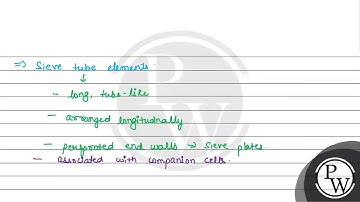 ⇒ Sieve tube elements.
↓
- long, tube-like
- arranged longitudnally
- perforated end walls → Sieve plates.
- associated with companion cells.
P
W
P
W